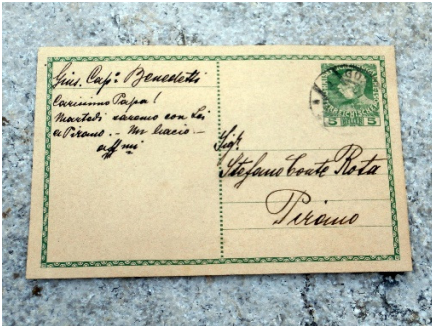 Gius. Cap.º Benedetti
Carissimo Papa!
Martedi saremo con Lei
a Pirano. – Un bacio –
aff mi
5 5
Sigr
Stefano Conte Rota
Pirano